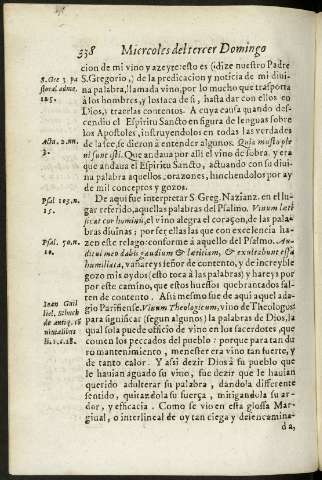 338 Miercoles del tercer Domingo
cion de mi vino y azeyte: esto es (dize nuestro Padre
S. Gregorio,) de la predicacion y noticia de mi divi-
na palabra, llamada vino, por lo mucho que trasporta
à los hombres, y los saca de si, hasta dar con ellos en
Dios, y traerlos contentos. A cuya causa quando des-
cendio el Espiritu Santo en figura de lenguas sobre
los Apostoles, instruyendolos en todas las verdades
de la fee, se dieron à entender algunos. Quia musto ple
ni sunt isti. Que andaua por alli el vino de sobra, y era
que andaua el Espiritu Santo, actuando con su diui-
na palabra aquellos corazones, hinchendolos por ay
de mil conceptos y gozos.
De aqui fue interpretar S. Greg. Nazianz. en el lu-
gar referido, aquellas palabras del Psalmo. Vinum læti
ficat cor hominis, el vino alegra el coraçon, de las pala-
bras diuinas; por ser ellas las que con excelencia ha-
zen este relago: conforme à aquello del Psalmo. Au-
ditui meo dabis gaudium & lætitiam, & exultabunt ossa
humiliata, vañareys señor de contento, y de increyble
gozo mis oydos (esto toca à las palabras) y hareys por
por este camino, que estos huessos quebrantados sal-
ten de contento. Assi mesmo fue de aqui aquel ada-
gio Parisiense. Vinum Theologicum, vino de Theologos:
para significar (segun algunos) la palabra de Dios, la
qual sola puede officio de vino en los sacerdotes, que
comen los peccados del pueblo: porque para tan du
ro mantenimiento, menester era vino tan fuerte, y
de tanto calor. Y assi dezir Dios à su pueblo que
le hauian aguado su vino, fue dezir que le hauian
querido adulterar su palabra, dandola differente
sentido, quitandola su fuerça, mitigandola su ar-
dor, y efficacia. Como se vio en esta glossa Mar-
ginal, o interlineal de oy tan ciega y desencamina-
da,
Act. 2. nu.
Psal. 103. n.
15.
Psal. 50. n.
10.